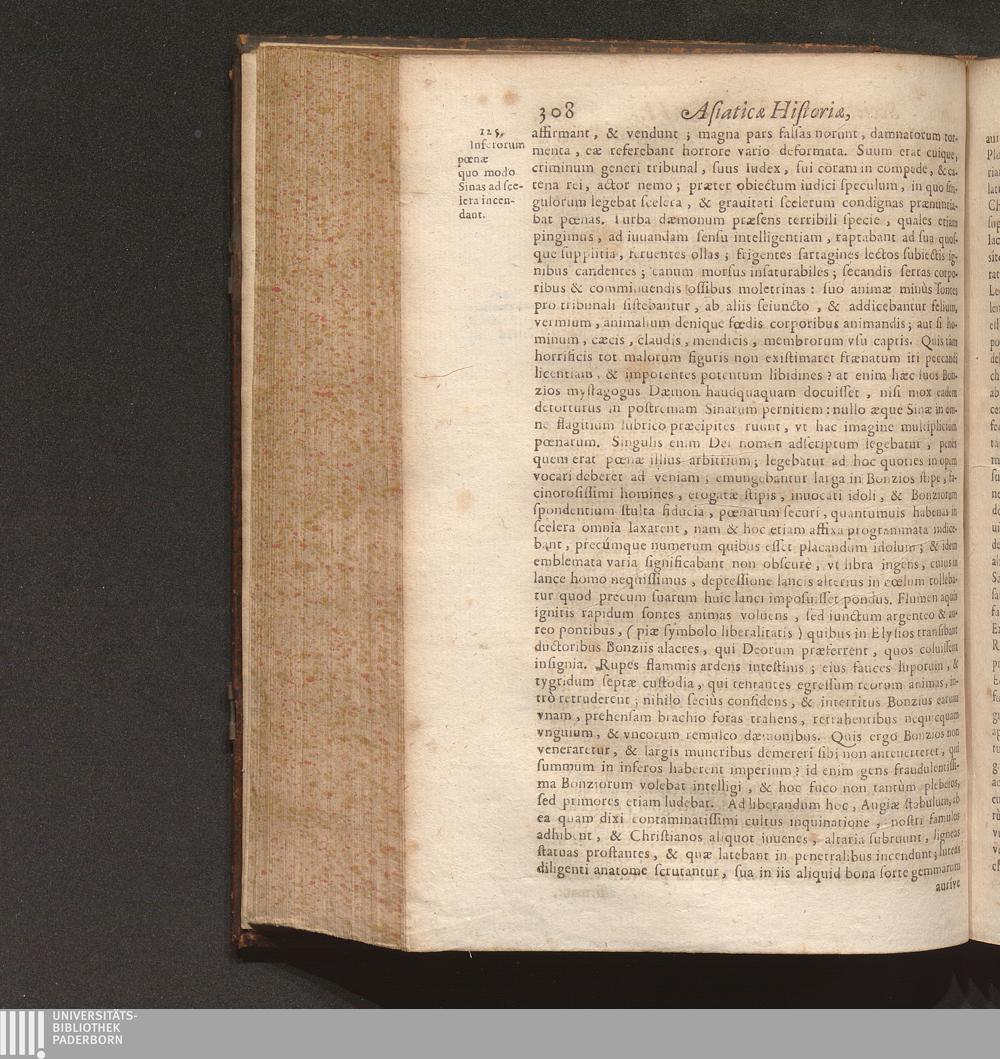 308 Asiaticæ Historiæ,
125,
Inferorum
pœnæ
quo modo
Sinas ad sce-
lera incen-
dant.
affirmant, & vendunt; magna pars falsas norunt, damnatorum tor-
menta, eæ referebant horrore vario deformata. Suum erat cuique,
criminum generi tribunal, suus Iudex, sui còram in compede, & ca-
tena rei, actor nemo; præter obiectum iudici speculum, in quo sin-
gulorum legebat scelera, & grauitati scelerum condignas prænuntia-
bat pœnas. Turba dæmonum præsens terribili specie, quales etiam
pingimus, ad iuuandam sensu intelligentiam, raptabant ad sua quos-
que supplitia, feruentes ollas; frigentes sartagines lectos subiectis ig-
nibus candentes; canum morsus insaturabiles; secandis serras corpo-
ribus & comminuendis ossibus moletrinas: suo animæ minùs sontes
pro tribunali sistebantur, ab aliis seiuncto, & addicebantur felium,
vermium, animalium denique fœdis corporibus animandis; aut si ho-
minum, cæcis, claudis, mendicis, membrorum vsu captis. Quis tàm
horrificis tot malorum figuris non existimaret frænatum iri peccandi
licentiam, & impotentes potentum libidines? at enim hæc suos Bon-
zios mystagogus Dæmon haudquaquam docuisset, nisi mox eadem
detorturus in postremam Sinarum pernitiem: nullo æque Sinæ in om-
ne flagitium lubrico præcipites ruunt, vt hac imagine multiplicium
pœnarum. Singulis enim Dei nomen adscriptum legebatur, penès
quem erat pœnæ illius arbitrium; legebatur ad hoc quoties in opem
vocari deberet ad veniam; emungebantur larga in Bonzios stipe, fa-
cinorosissimi homines, erogatæ stipis, inuocati idoli, & Bonziorum
spondentium stulta fiducia, pœnarum securi, quantumuis habenas in
scelera omnia laxarent, nam & hoc etiam affixa programmata indice-
bant, precúmque numerum quibus esset placandum idolum; & idem
emblemata varia significabant non obscurè, vt libra ingens, cuius in
lance homo nequissimus, depressione lancis alterius in cœlum tolleba-
tur quod precum suarum huic lanci imposuisset pondus. Flumen aquis
ignitis rapidum sontes animas voluens, sed iunctum argenteo & au-
reo pontibus, (piæ symbolo liberalitatis) quibus in Elysios transibant
ductoribus Bonziis alacres, qui Deorum præferrent, quos coluissent
insignia. Rupes flammis ardens intestinis; eius fauces luporum, &
tygridum septæ custodia, qui tentantes egressum reorum animas, in-
trò retruderent; nihilo seciùs confidens, & interritus Bonzius earum
vnam, prehensam brachio foras trahens, retrahentibus nequicquam
vnguium, & vncorum remulco dæmonibus. Quis ergo Bonzios non
veneraretur, & largis muneribus demereri sibi non anteuerteret, qui
summum in inferos haberent imperium? id enim gens fraudulentissi-
ma Bonziorum volebat intelligi, & hoc fuco non tantùm plebeios,
sed primores etiam ludebat. Ad liberandum hoc, Augiæ stabulum, ab
ea quam dixi contaminatissimi cultus inquinatione, nostri famulos
adhibent, & Christianos aliquot iuuenes, altaria subruunt, ligneas
statuas prostantes, & quæ latebant in penetralibus incendunt; luteas
diligenti anatome scrutantur, sua in iis aliquid bona sorte gemmarum
aurive
UNIVERSITÄTS-
BIBLIOTHEK
PADERBORN